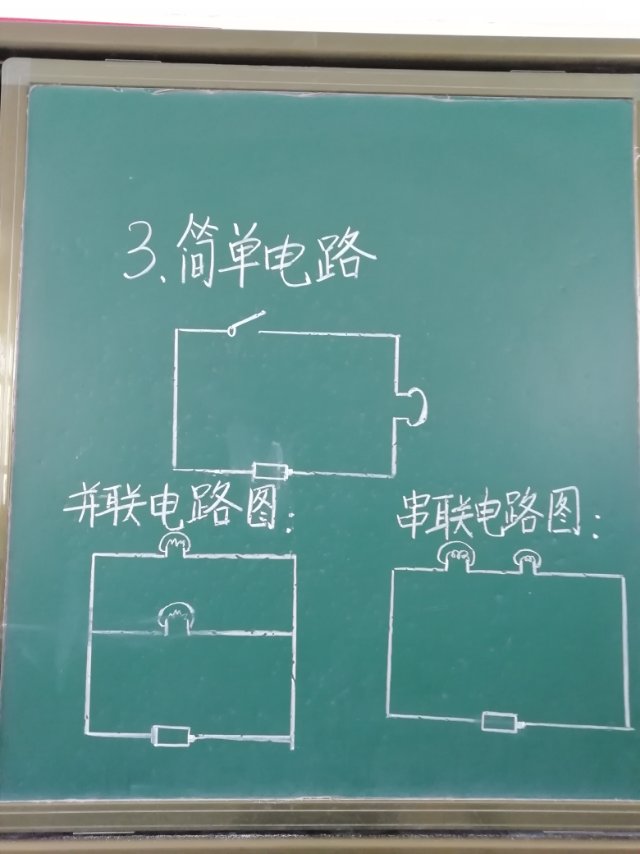 3、简单电路
并联电路图：
串联电路图：